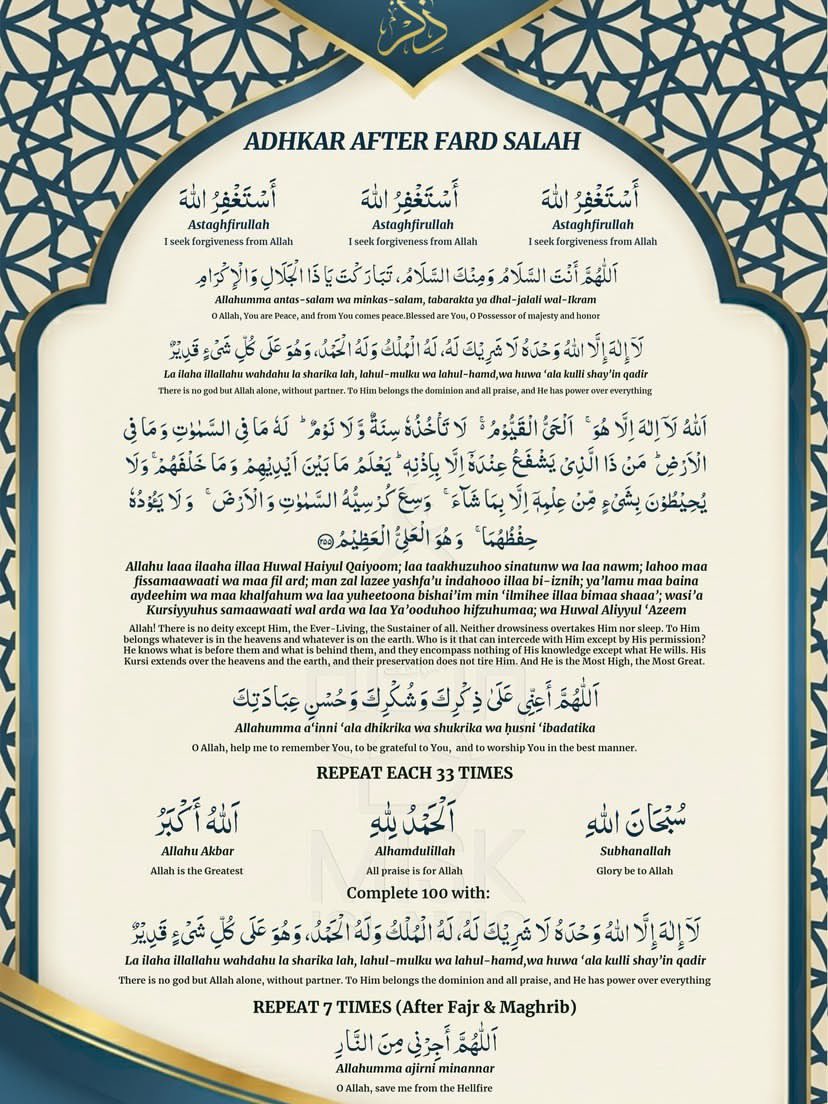 ذِكْر
ADHKAR AFTER FARD SALAH
أَسْتَغْفِرُ اللهَ أَسْتَغْفِرُ اللهَ أَسْتَغْفِرُ اللهَ
Astaghfirullah Astaghfirullah Astaghfirullah
I seek forgiveness from Allah I seek forgiveness from Allah I seek forgiveness from Allah
اَللّٰهُمَّ أَنْتَ السَّلَامُ وَمِنْكَ السَّلَامُ، تَبَارَكْتَ يَا ذَا الْجَلَالِ وَالْإِكْرَامِ
Allahumma antas-salam wa minkas-salam, tabarakta ya dhal-jalali wal-Ikram
O Allah, You are Peace, and from You comes peace.Blessed are You, O Possessor of majesty and honor
لَآ إِلٰهَ إِلَّا اللهُ وَحْدَهُ لَا شَرِيْكَ لَهُ، لَهُ الْمُلْكُ وَلَهُ الْحَمْدُ، وَهُوَ عَلَى كُلِّ شَيْءٍ قَدِيْرٌ
La ilaha illallahu wahdahu la sharika lah, lahul-mulku wa lahul-hamd,wa huwa ‘ala kulli shay’in qadir
There is no god but Allah alone, without partner. To Him belongs the dominion and all praise, and He has power over everything
اَللهُ لَآ اِلٰهَ اِلَّا هُوَ ۚ اَلْحَيُّ الْقَيُّوْمُ ۚ لَا تَأْخُذُهٗ سِنَةٌ وَّلَا نَوْمٌ ؕ لَهٗ مَا فِى السَّمٰوٰتِ وَمَا فِى
الْاَرْضِ ؕ مَنْ ذَا الَّذِىْ يَشْفَعُ عِنْدَهٗٓ اِلَّا بِاِذْنِهٖ ؕ يَعْلَمُ مَا بَيْنَ اَيْدِيْهِمْ وَمَا خَلْفَهُمْ ۚ وَلَا
يُحِيْطُوْنَ بِشَىْءٍ مِّنْ عِلْمِهٖٓ اِلَّا بِمَا شَآءَ ۚ وَسِعَ كُرْسِيُّهُ السَّمٰوٰتِ وَالْاَرْضَ ۚ وَلَا يَـُٔوْدُهٗ
حِفْظُهُمَا ۚ وَهُوَ الْعَلِىُّ الْعَظِيْمُ ﴿۲۵۵﴾
Allahu laaa ilaaha illaa Huwal Haiyul Qaiyoom; laa taakhuzuhoo sinatunw wa laa nawm; lahoo maa
fissamaawaati wa maa fil ard; man zal lazee yashfa’u indahooo illaa bi-iznih; ya’lamu maa baina
aydeehim wa maa khalfahum wa laa yuheetoona bishai’im min ‘ilmihee illaa bimaa shaaa’; wasi’a
Kursiyyuhus samaawaati wal arda wa laa Ya’ooduhoo hifzuhumaa; wa Huwal Aliyyul ‘Azeem
Allah! There is no deity except Him, the Ever-Living, the Sustainer of all. Neither drowsiness overtakes Him nor sleep. To Him
belongs whatever is in the heavens and whatever is on the earth. Who is it that can intercede with Him except by His permission?
He knows what is before them and what is behind them, and they encompass nothing of His knowledge except what He wills. His
Kursi extends over the heavens and the earth, and their preservation does not tire Him. And He is the Most High, the Most Great.
اَللّٰهُمَّ أَعِنِّي عَلَىٰ ذِكْرِكَ وَشُكْرِكَ وَحُسْنِ عِبَادَتِكَ
Allahumma a‘inni ‘ala dhikrika wa shukrika wa ḥusni ‘ibadatika
O Allah, help me to remember You, to be grateful to You, and to worship You in the best manner.
REPEAT EACH 33 TIMES
سُبْحَانَ اللهِ اَلْحَمْدُ لِلّٰهِ اَللهُ أَكْبَرُ
Allahu Akbar Alhamdulillah Subhanallah
Allah is the Greatest All praise is for Allah Glory be to Allah
Complete 100 with:
لَآ إِلٰهَ إِلَّا اللهُ وَحْدَهُ لَا شَرِيْكَ لَهُ، لَهُ الْمُلْكُ وَلَهُ الْحَمْدُ، وَهُوَ عَلَى كُلِّ شَيْءٍ قَدِيْرٌ
La ilaha illallahu wahdahu la sharika lah, lahul-mulku wa lahul-hamd,wa huwa ‘ala kulli shay’in qadir
There is no god but Allah alone, without partner. To Him belongs the dominion and all praise, and He has power over everything
REPEAT 7 TIMES (After Fajr & Maghrib)
اَللّٰهُمَّ أَجِرْنِي مِنَ النَّارِ
Allahumma ajirni minannar
O Allah, save me from the Hellfire